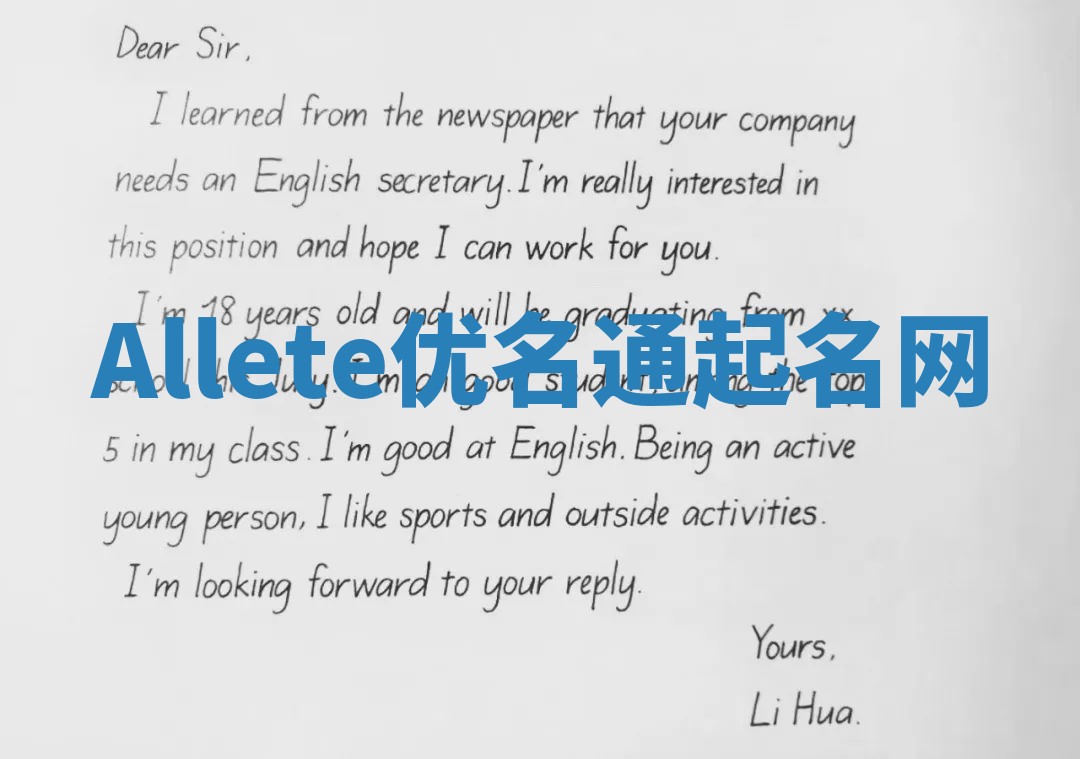 Dear Sir,
I learned from the newspaper that your company
needs an English secretary. I'm really interested in
this position and hope I can work for you.
I'm 18 years old and will be graduating from xx
Allete优名通起名网
school this July. I'm a good student, among the top
5 in my class. I'm good at English. Being an active
young person, I like sports and outside activities.
I'm looking forward to your reply.
Yours,
Li Hua.